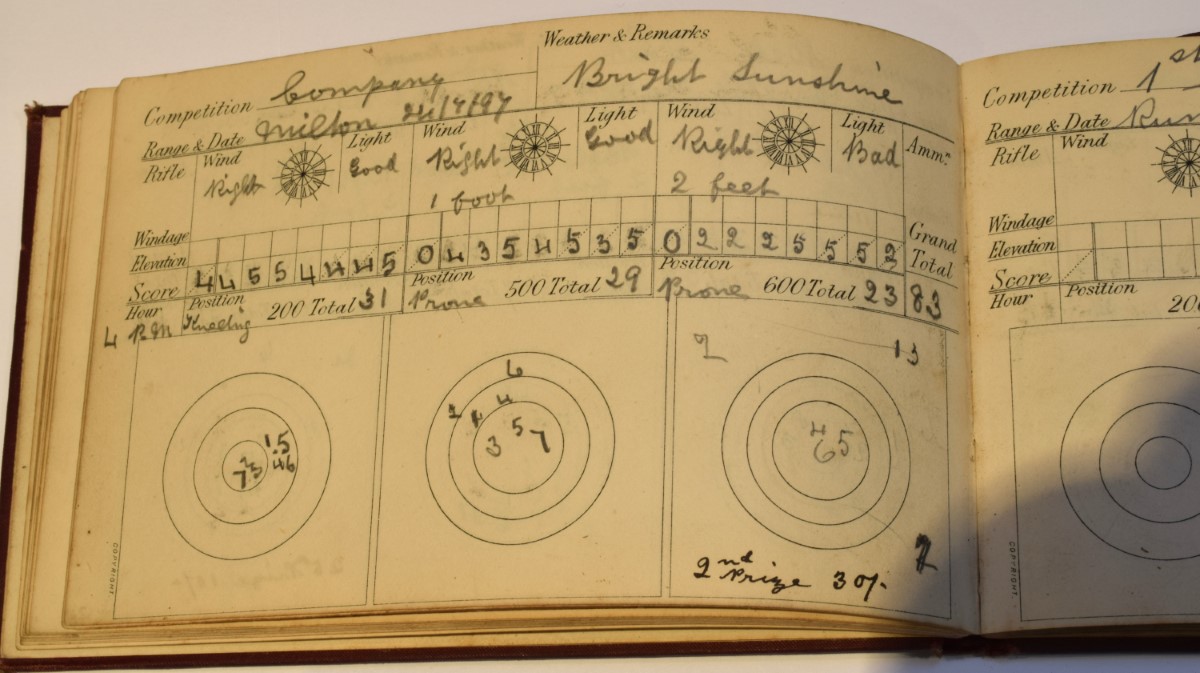 Weather & Remarks
Competition Company
Bright Sunshine
Range & Date Milton 24/7/97
Rifle Wind Light Wind Light Wind Light Ammn.
Right Good Right Good Right Bad
1 foot 2 feet
Windage
Elevation
Score 4 4 5 5 4 4 4 5 0 4 3 5 4 5 3 5 0 2 2 2 5 5 5 2
Grand Total
Hour Position 200 Total 31 Position 500 Total 29 Position 600 Total 23 83
4 P.M Kneeling Prone Prone
1 5
2 4 6
7 3
6
2 1 4
3 5 7
2 13
4 6 5
7
2nd Prize 30/-
COPYRIGHT
1st
Competition
Range & Date Run
Rifle Wind
Windage
Elevation
Score
Hour Position 200
COPYRIGHT.